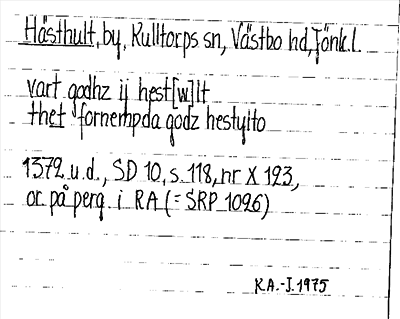 Hästhult, by, Kulltorps sn, Västbo hd, Jönk.l.
vart godhz ij hest[w]lt
thet fornempda godz hestylto
1372 u.d., SD 10, s. 118, nr X 123,
or på perg. i RA (= SRP 1026)
K.A.-J. 1975